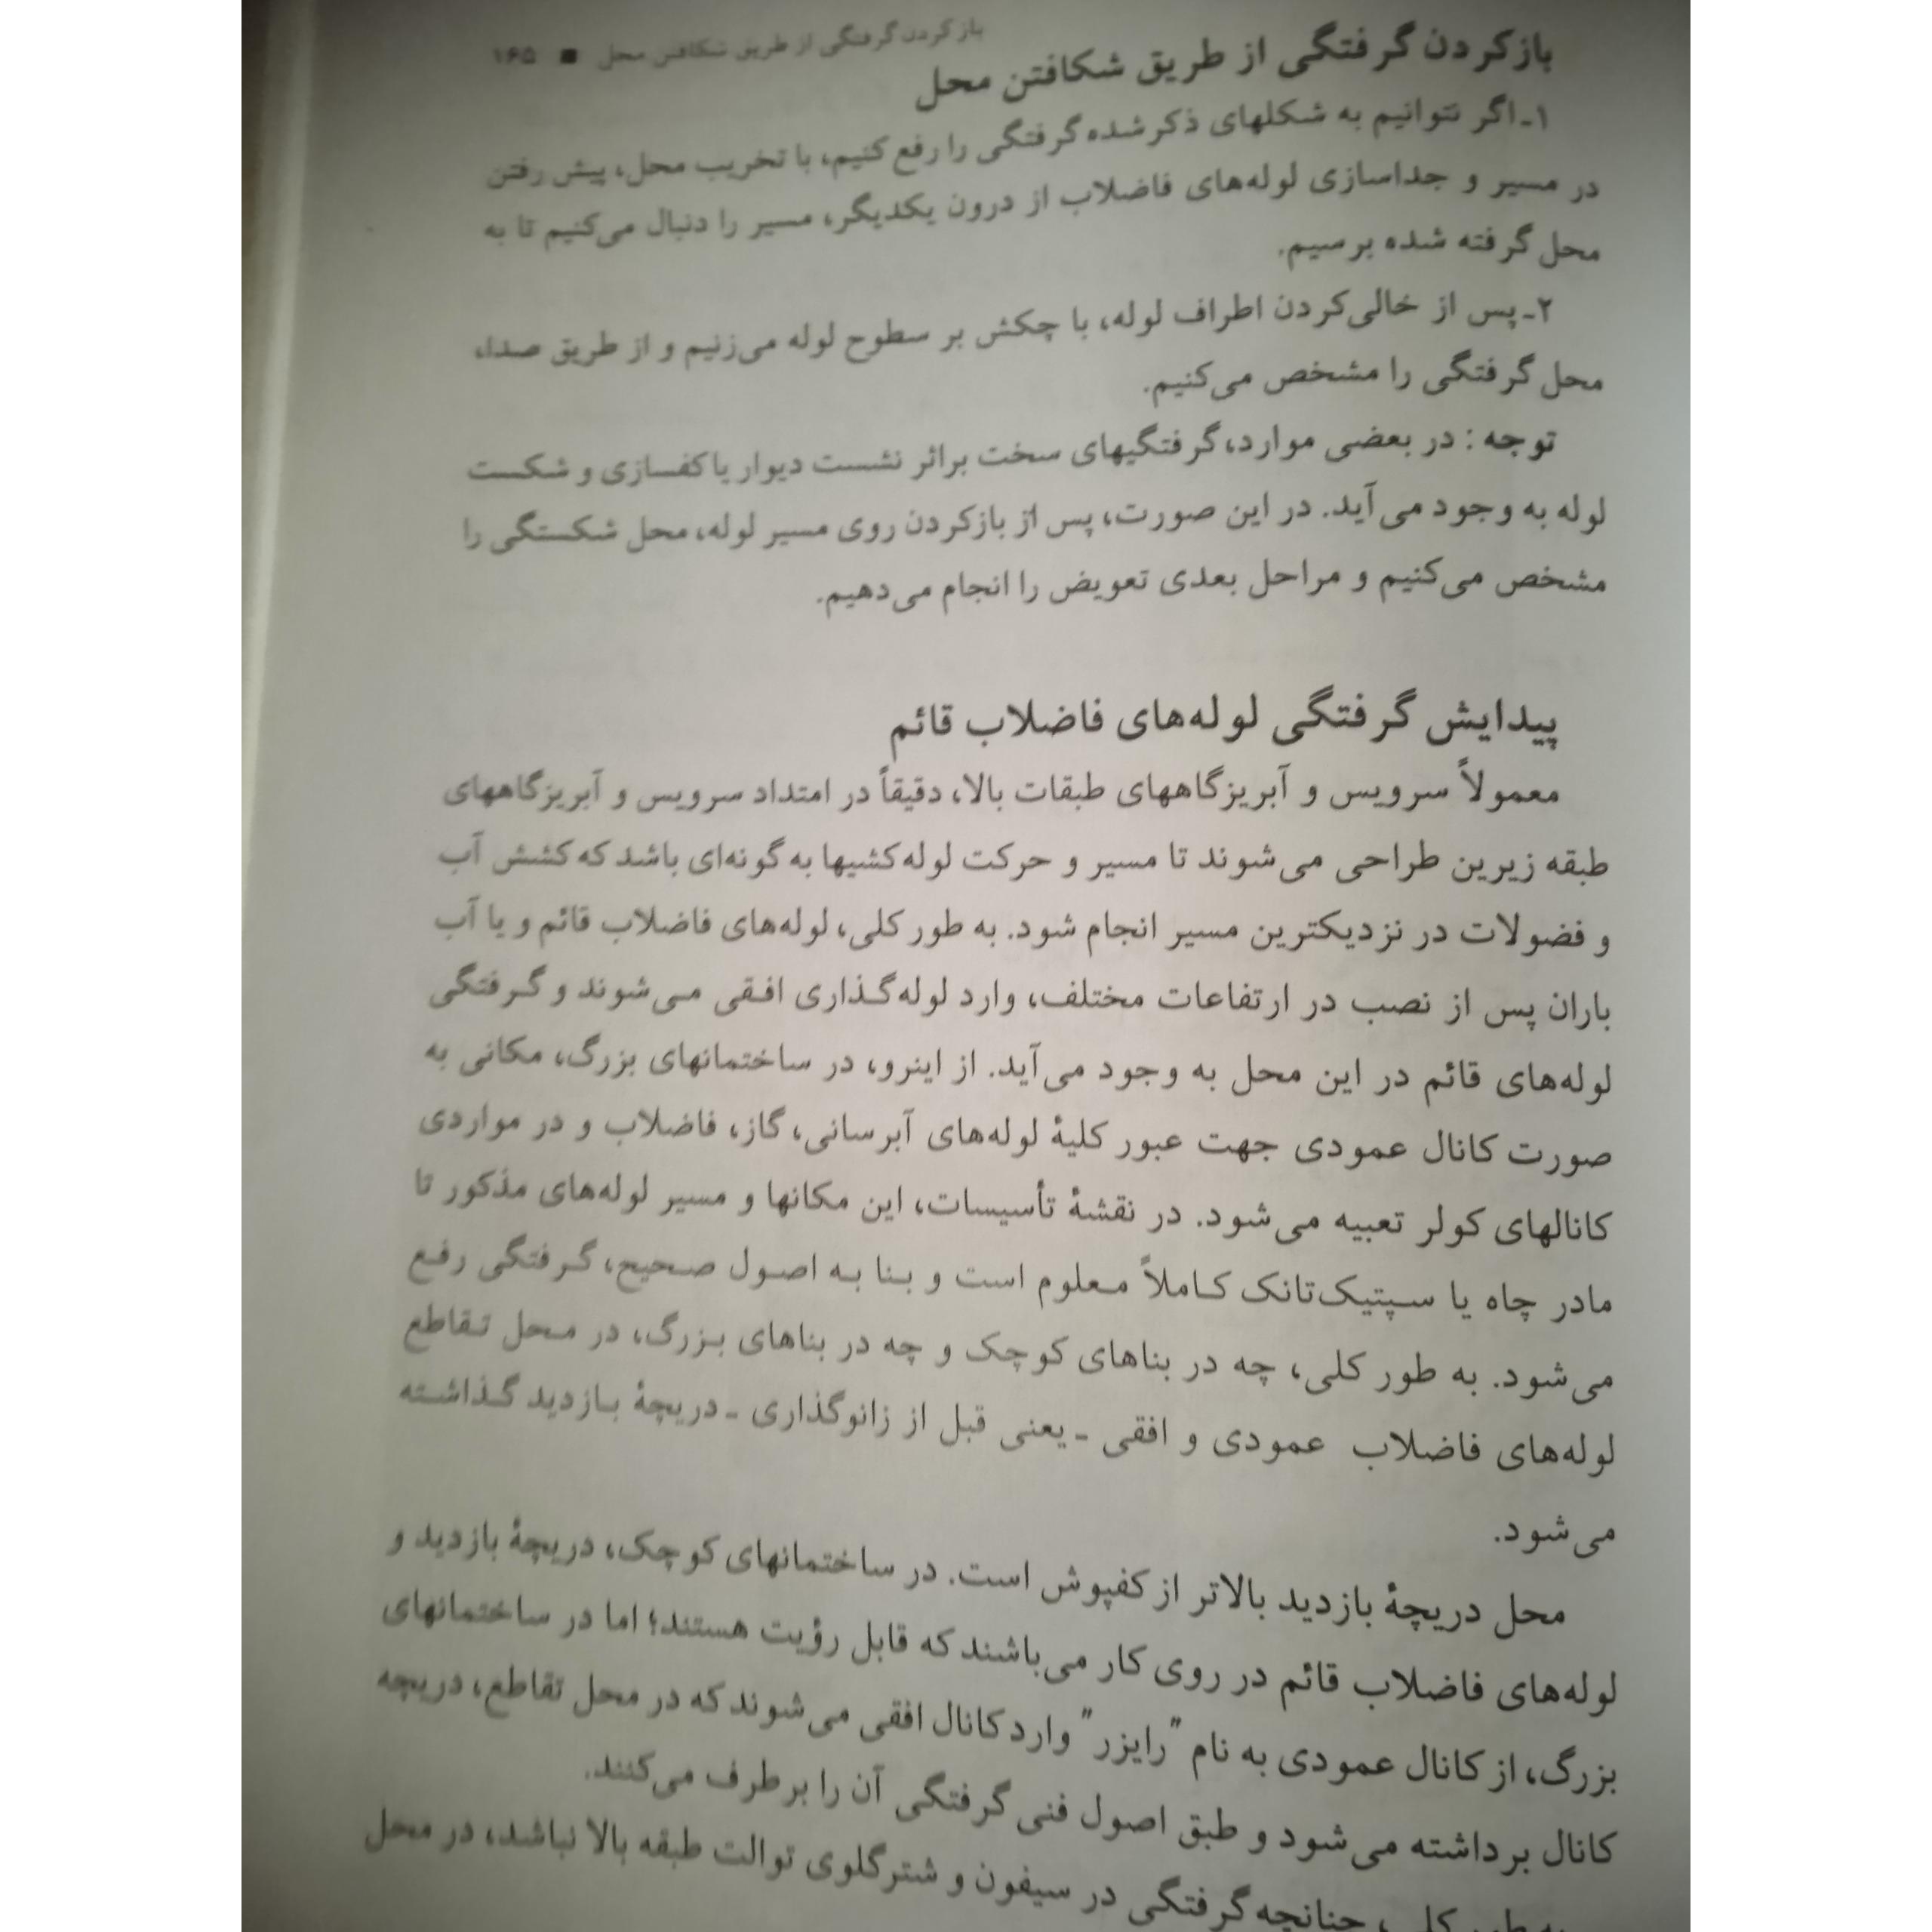 بازکردن گرفتگی از طریق شکافتن محل ■ ۱۶۵
بازکردن گرفتگی از طریق شکافتن محل
۱ـ اگر نتوانیم به شکلهای ذکر شده گرفتگی را رفع کنیم، با تخریب محل، پیش رفتن
در مسیر و جداسازی لوله‌های فاضلاب از درون یکدیگر، مسیر را دنبال می‌کنیم تا به
محل گرفته شده برسیم.
۲ـ پس از خالی‌کردن اطراف لوله، با چکش بر سطوح لوله می‌زنیم و از طریق صدا،
محل گرفتگی را مشخص می‌کنیم.
توجه : در بعضی موارد، گرفتگیهای سخت براثر نشست دیوار یا کفسازی و شکست
لوله به وجود می‌آید. در این صورت، پس از بازکردن روی مسیر لوله، محل شکستگی را
مشخص می‌کنیم و مراحل بعدی تعویض را انجام می‌دهیم.
پیدایش گرفتگی لوله‌های فاضلاب قائم
معمولاً سرویس و آبریزگاههای طبقات بالا، دقیقاً در امتداد سرویس و آبریزگاههای
طبقه زیرین طراحی می‌شوند تا مسیر و حرکت لوله‌کشیها به گونه‌ای باشد که کشش آب
و فضولات در نزدیکترین مسیر انجام شود. به طور کلی، لوله‌های فاضلاب قائم و یا آب
باران پس از نصب در ارتفاعات مختلف، وارد لوله‌گذاری افقی می‌شوند و گرفتگی
لوله‌های قائم در این محل به وجود می‌آید. از اینرو، در ساختمانهای بزرگ، مکانی به
صورت کانال عمودی جهت عبور کلیهٔ لوله‌های آبرسانی، گاز، فاضلاب و در مواردی
کانالهای کولر تعبیه می‌شود. در نقشهٔ تأسیسات، این مکانها و مسیر لوله‌های مذکور تا
مادر چاه یا سپتیک‌تانک کاملاً معلوم است و بنا به اصول صحیح، گرفتگی رفع
می‌شود. به طور کلی، چه در بناهای کوچک و چه در بناهای بزرگ، در محل تقاطع
لوله‌های فاضلاب عمودی و افقی ـ یعنی قبل از زانوگذاری ـ دریچهٔ بازدید گذاشته
می‌شود.
محل دریچهٔ بازدید بالاتر از کفپوش است. در ساختمانهای کوچک، دریچهٔ بازدید و
لوله‌های فاضلاب قائم در روی کار می‌باشند که قابل رؤیت هستند؛ اما در ساختمانهای
بزرگ، از کانال عمودی به نام "رایزر" وارد کانال افقی می‌شوند که در محل تقاطع، دریچه
کانال برداشته می‌شود و طبق اصول فنی گرفتگی آن را برطرف می‌کنند.
به طور کلی، چنانچه گرفتگی در سیفون و شترگلوی توالت طبقه بالا نباشد، در محل